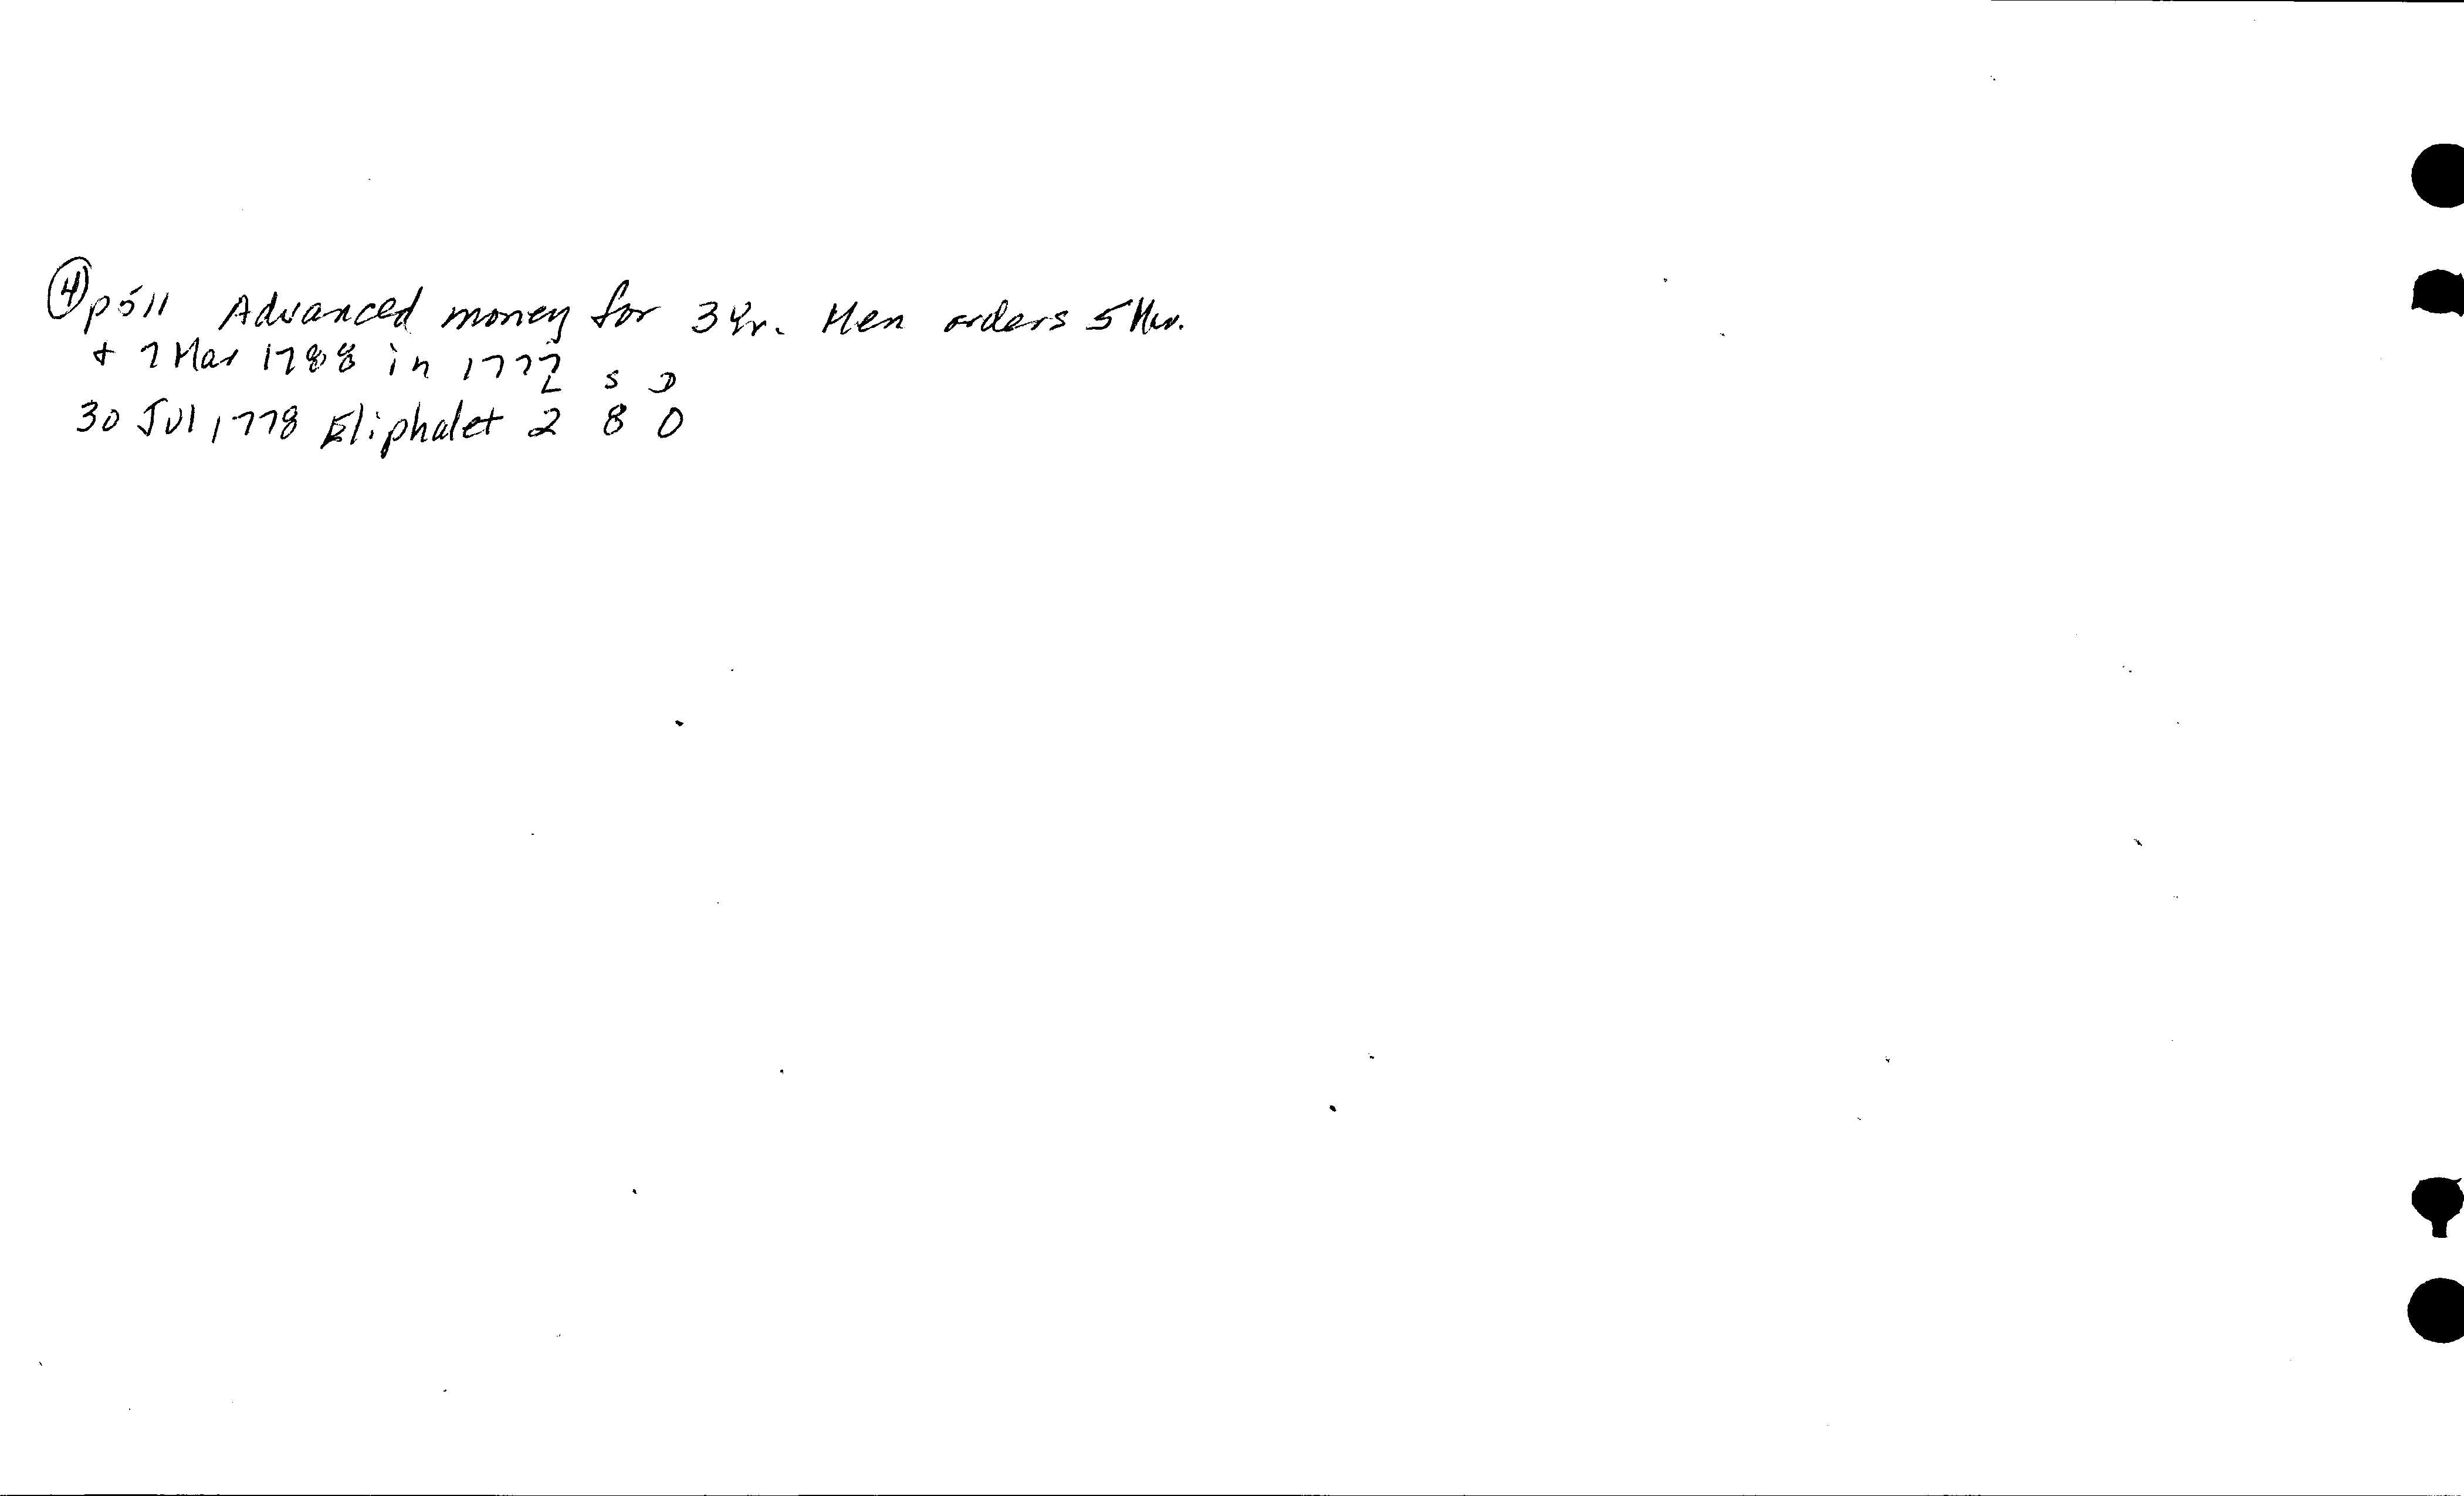 ④ p511 Advanced money for 3 Yr. Men orders 5 Mar.
+ 7 Mar 1788 in 1777
L S D
30 Jul 1778 Eliphalet 2 8 0